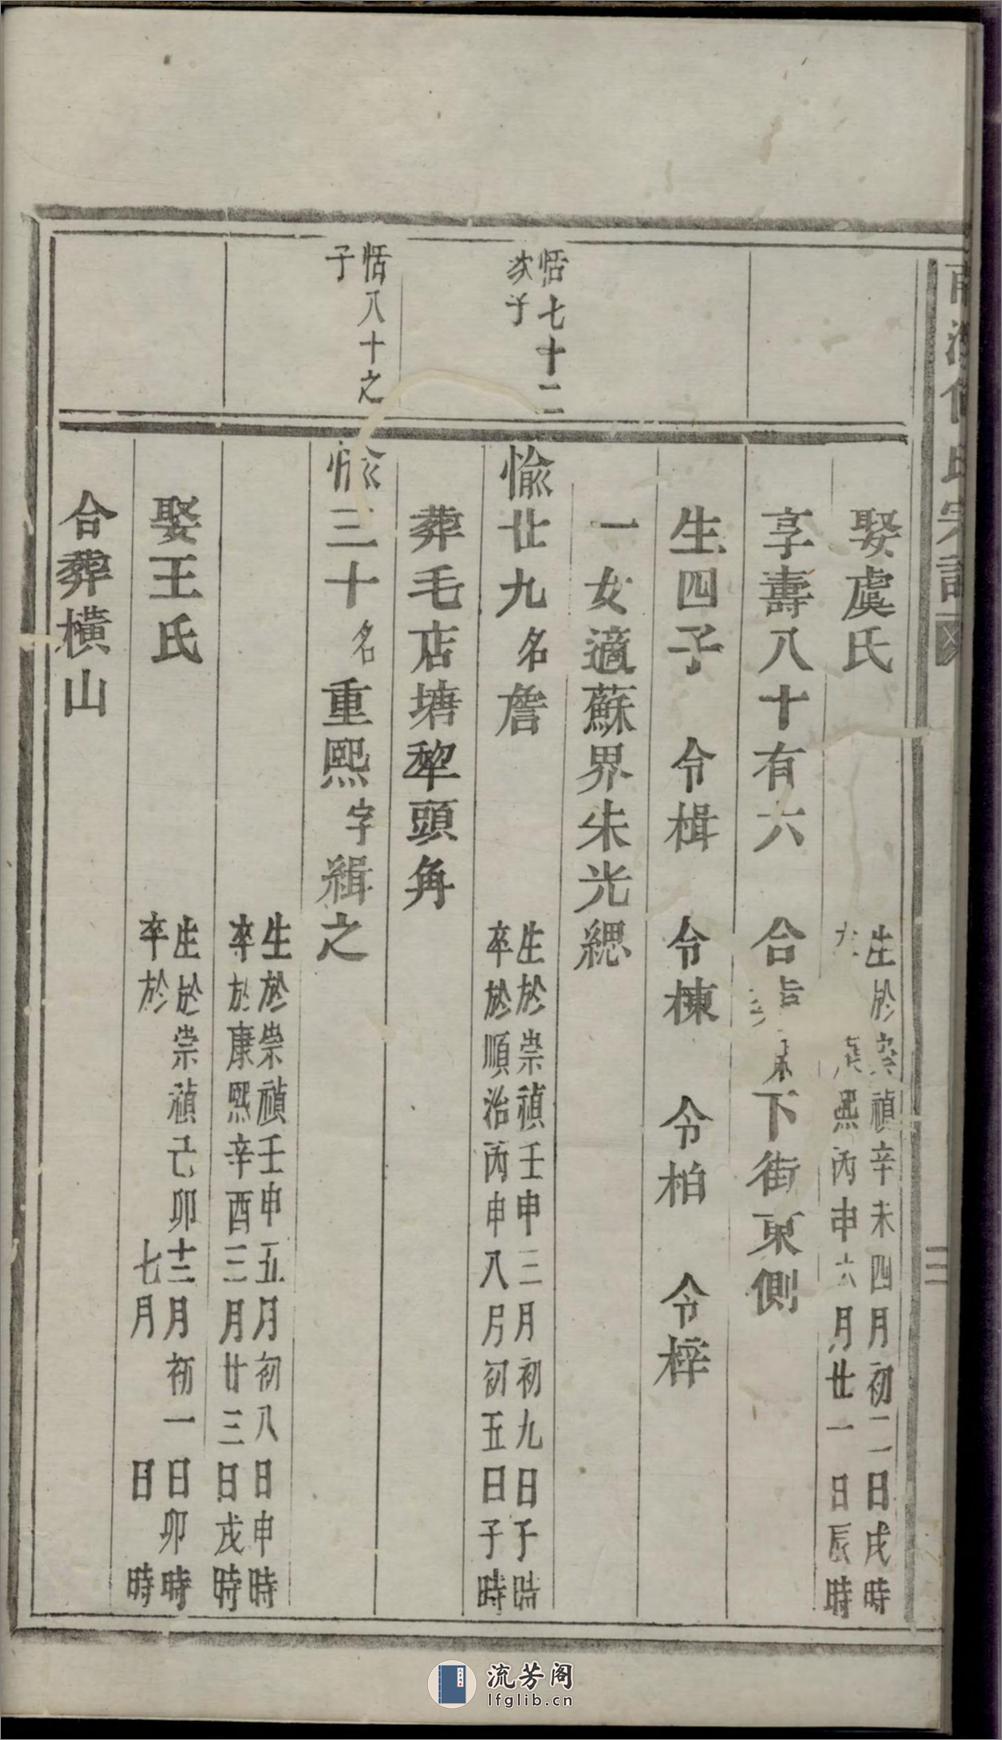 娶虞氏
生於崇禎辛未四月初二日戌時
熙丙申六月廿一日辰時
享壽八十有六 合葬 下街東側
生四子 令楫 令棟 令柏 令梓
一女適蘇界朱光緦
恬七十二
次子
愉廿九名詹
生於崇禎壬申三月初九日子時
卒於順治丙申八月初五日子時
葬毛店塘犂頭角
恬八十之
子
愉三十名重熙字緝之
生於崇禎壬申五月初八日申時
卒於康熙辛酉三月廿三日戌時
娶王氏
生於崇禎己卯十二月初一日卯時
卒於 七月 日 時
合葬橫山
氏宗譜
二
流芳阁
lfglib.cn